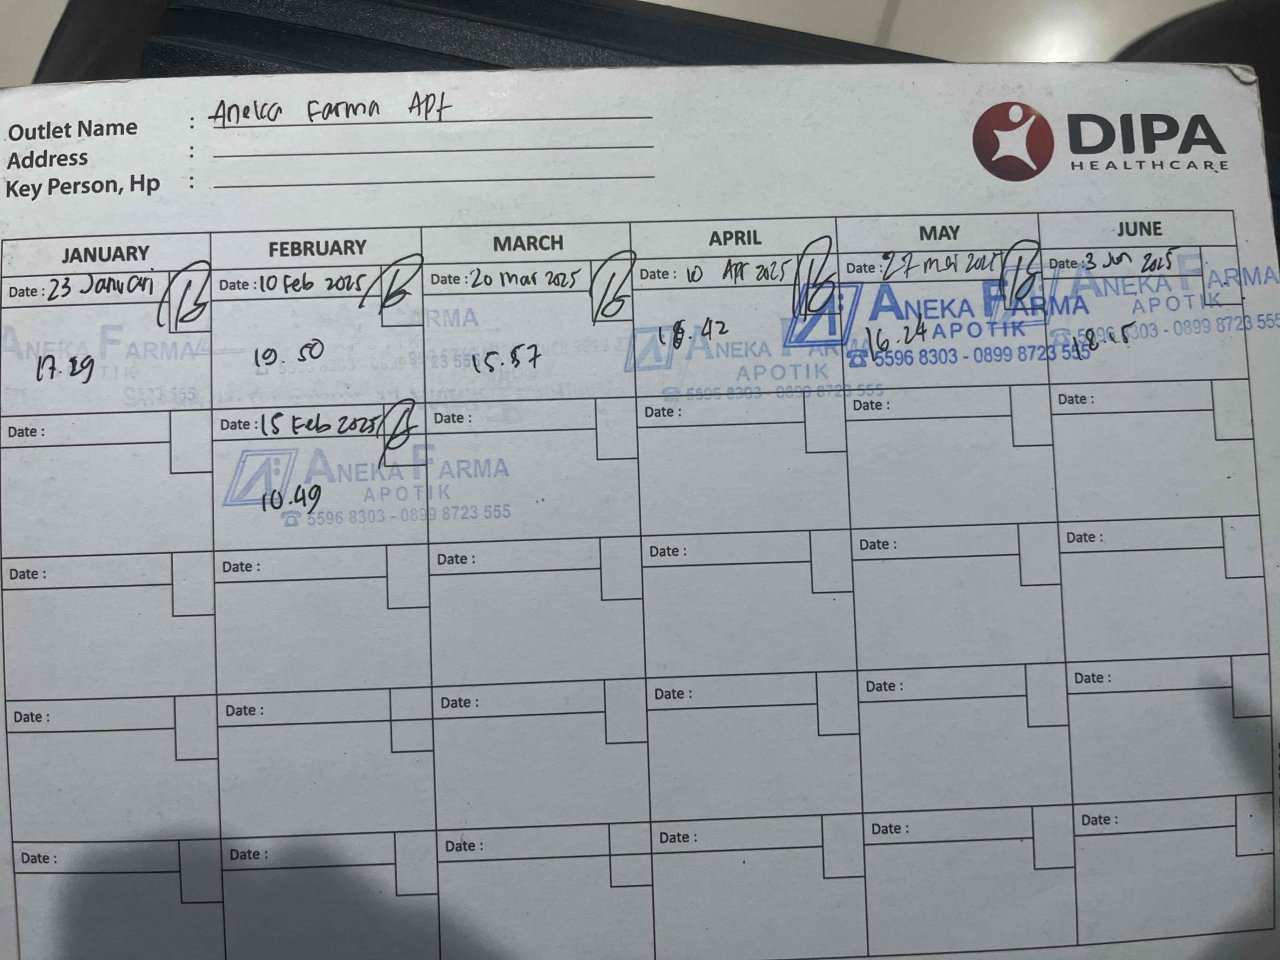 Outlet Name : Aneka Farma Apt
Address :
Key Person, Hp :
DIPA
HEALTHCARE
JANUARY FEBRUARY MARCH APRIL MAY JUNE
Date : 23 Januari Date : 10 Feb 2025 Date : 20 mar 2025 Date : 10 Apr 2025 Date : 27 mei 2025 Date : 3 Jun 2025
ANEKA FARMA
17.29
FARMA
19.50
15.57
42
ANEKA FARMA
APOTIK
5596 8303 - 0899 8723 555
16.24
ANEKA FARMA
APOTIK
5596 8303 - 0899 8723 555
ANEKA FARMA
APOTIK
5596 8303 - 0899 8723 555
Date : Date : 15 Feb 2025 Date : Date : Date : Date :
ANEKA FARMA
APOTIK
10.49
5596 8303 - 0899 8723 555
Date : Date : Date : Date : Date : Date :
Date : Date : Date : Date : Date : Date :
Date : Date : Date : Date : Date : Date :